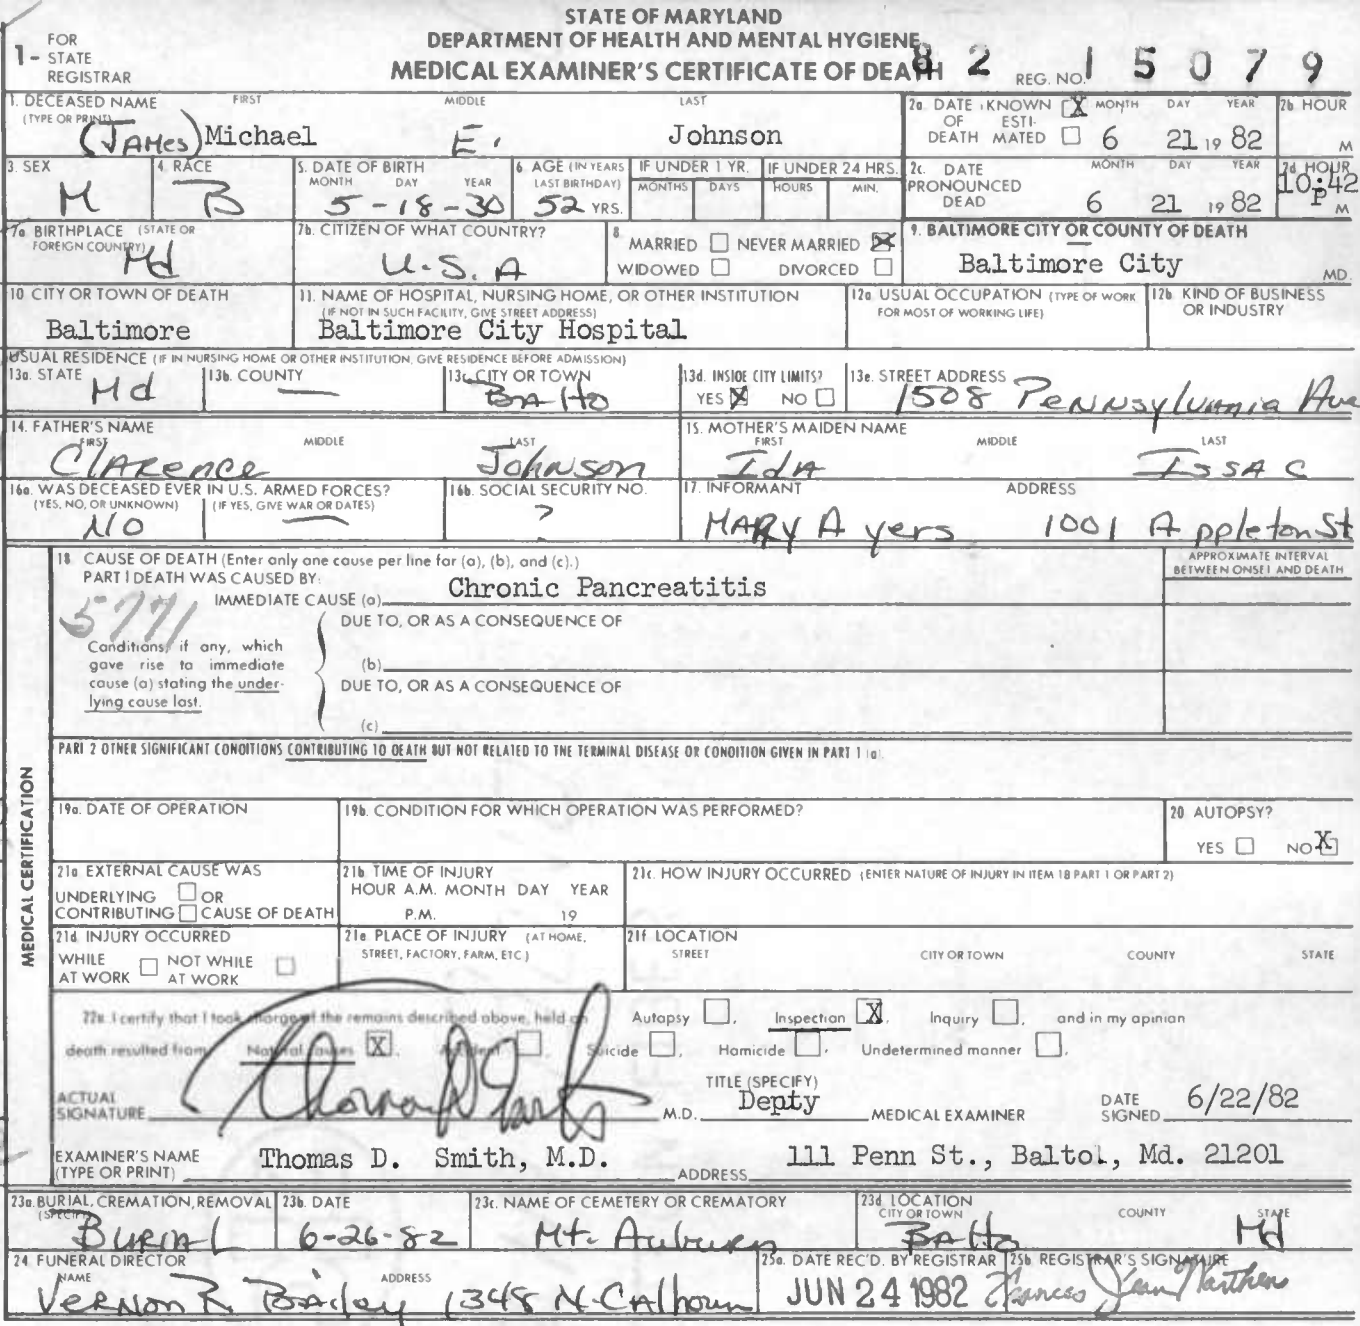 STATE OF MARYLAND
DEPARTMENT OF HEALTH AND MENTAL HYGIENE
MEDICAL EXAMINER'S CERTIFICATE OF DEATH
1- FOR STATE REGISTRAR
82 REG. NO. 15079
1. DECEASED NAME (TYPE OR PRINT) FIRST MIDDLE LAST
(JAMes) Michael E. Johnson
2a. DATE OF DEATH KNOWN X ESTIMATED MONTH DAY YEAR 6 21 19 82
2b. HOUR M
3. SEX M
4. RACE B
5. DATE OF BIRTH MONTH DAY YEAR 5-18-30
6. AGE (IN YEARS LAST BIRTHDAY) 52 YRS.
IF UNDER 1 YR. MONTHS DAYS
IF UNDER 24 HRS. HOURS MIN.
2c. DATE PRONOUNCED DEAD MONTH DAY YEAR 6 21 19 82
2d. HOUR 10:42 P M
7a. BIRTHPLACE (STATE OR FOREIGN COUNTRY) Md
7b. CITIZEN OF WHAT COUNTRY? U.S.A
8. MARRIED NEVER MARRIED X WIDOWED DIVORCED
9. BALTIMORE CITY OR COUNTY OF DEATH
Baltimore City MD.
10. CITY OR TOWN OF DEATH
Baltimore
11. NAME OF HOSPITAL, NURSING HOME, OR OTHER INSTITUTION (IF NOT IN SUCH FACILITY, GIVE STREET ADDRESS)
Baltimore City Hospital
12a. USUAL OCCUPATION (TYPE OF WORK FOR MOST OF WORKING LIFE)
12b. KIND OF BUSINESS OR INDUSTRY
USUAL RESIDENCE (IF IN NURSING HOME OR OTHER INSTITUTION, GIVE RESIDENCE BEFORE ADMISSION)
13a. STATE Md
13b. COUNTY —
13c. CITY OR TOWN BAlto
13d. INSIDE CITY LIMITS? YES X NO
13e. STREET ADDRESS 1508 Pennsylvania Ave
14. FATHER'S NAME FIRST MIDDLE LAST
Clarence Johnson
15. MOTHER'S MAIDEN NAME FIRST MIDDLE LAST
IdA IssAc
16a. WAS DECEASED EVER IN U.S. ARMED FORCES? (YES, NO, OR UNKNOWN) (IF YES, GIVE WAR OR DATES)
NO —
16b. SOCIAL SECURITY NO. ?
17. INFORMANT ADDRESS
MARY Ayers 1001 Appleton St
18. CAUSE OF DEATH (Enter only one cause per line for (a), (b), and (c).)
APPROXIMATE INTERVAL BETWEEN ONSET AND DEATH
PART I DEATH WAS CAUSED BY:
IMMEDIATE CAUSE (a) Chronic Pancreatitis
5771
DUE TO, OR AS A CONSEQUENCE OF
Conditions, if any, which gave rise to immediate cause (a) stating the underlying cause last.
(b)
DUE TO, OR AS A CONSEQUENCE OF
(c)
PART 2 OTHER SIGNIFICANT CONDITIONS CONTRIBUTING TO DEATH BUT NOT RELATED TO THE TERMINAL DISEASE OR CONDITION GIVEN IN PART 1 (a).
MEDICAL CERTIFICATION
19a. DATE OF OPERATION
19b. CONDITION FOR WHICH OPERATION WAS PERFORMED?
20. AUTOPSY? YES NO X
21a. EXTERNAL CAUSE WAS UNDERLYING OR CONTRIBUTING CAUSE OF DEATH
21b. TIME OF INJURY HOUR A.M. MONTH DAY YEAR P.M. 19
21c. HOW INJURY OCCURRED (ENTER NATURE OF INJURY IN ITEM 18 PART 1 OR PART 2)
21d. INJURY OCCURRED WHILE AT WORK NOT WHILE AT WORK
21e. PLACE OF INJURY (AT HOME, STREET, FACTORY, FARM, ETC.)
21f. LOCATION STREET CITY OR TOWN COUNTY STATE
22a. I certify that I took charge of the remains described above, held an Autopsy , Inspection X, Inquiry , and in my opinion
death resulted from Natural causes X, Accident , Suicide , Homicide , Undetermined manner .
ACTUAL SIGNATURE M.D. TITLE (SPECIFY) Depty MEDICAL EXAMINER DATE SIGNED 6/22/82
EXAMINER'S NAME (TYPE OR PRINT) Thomas D. Smith, M.D. ADDRESS 111 Penn St., Baltol, Md. 21201
23a. BURIAL, CREMATION, REMOVAL (SPECIFY) BuriAL
23b. DATE 6-26-82
23c. NAME OF CEMETERY OR CREMATORY Mt. Auburn
23d. LOCATION CITY OR TOWN COUNTY STATE BAlto Md
24. FUNERAL DIRECTOR NAME ADDRESS
Vernon R. Bailey 1348 N. CAlhoun
25a. DATE REC'D. BY REGISTRAR JUN 24 1982
25b. REGISTRAR'S SIGNATURE Frances Jean